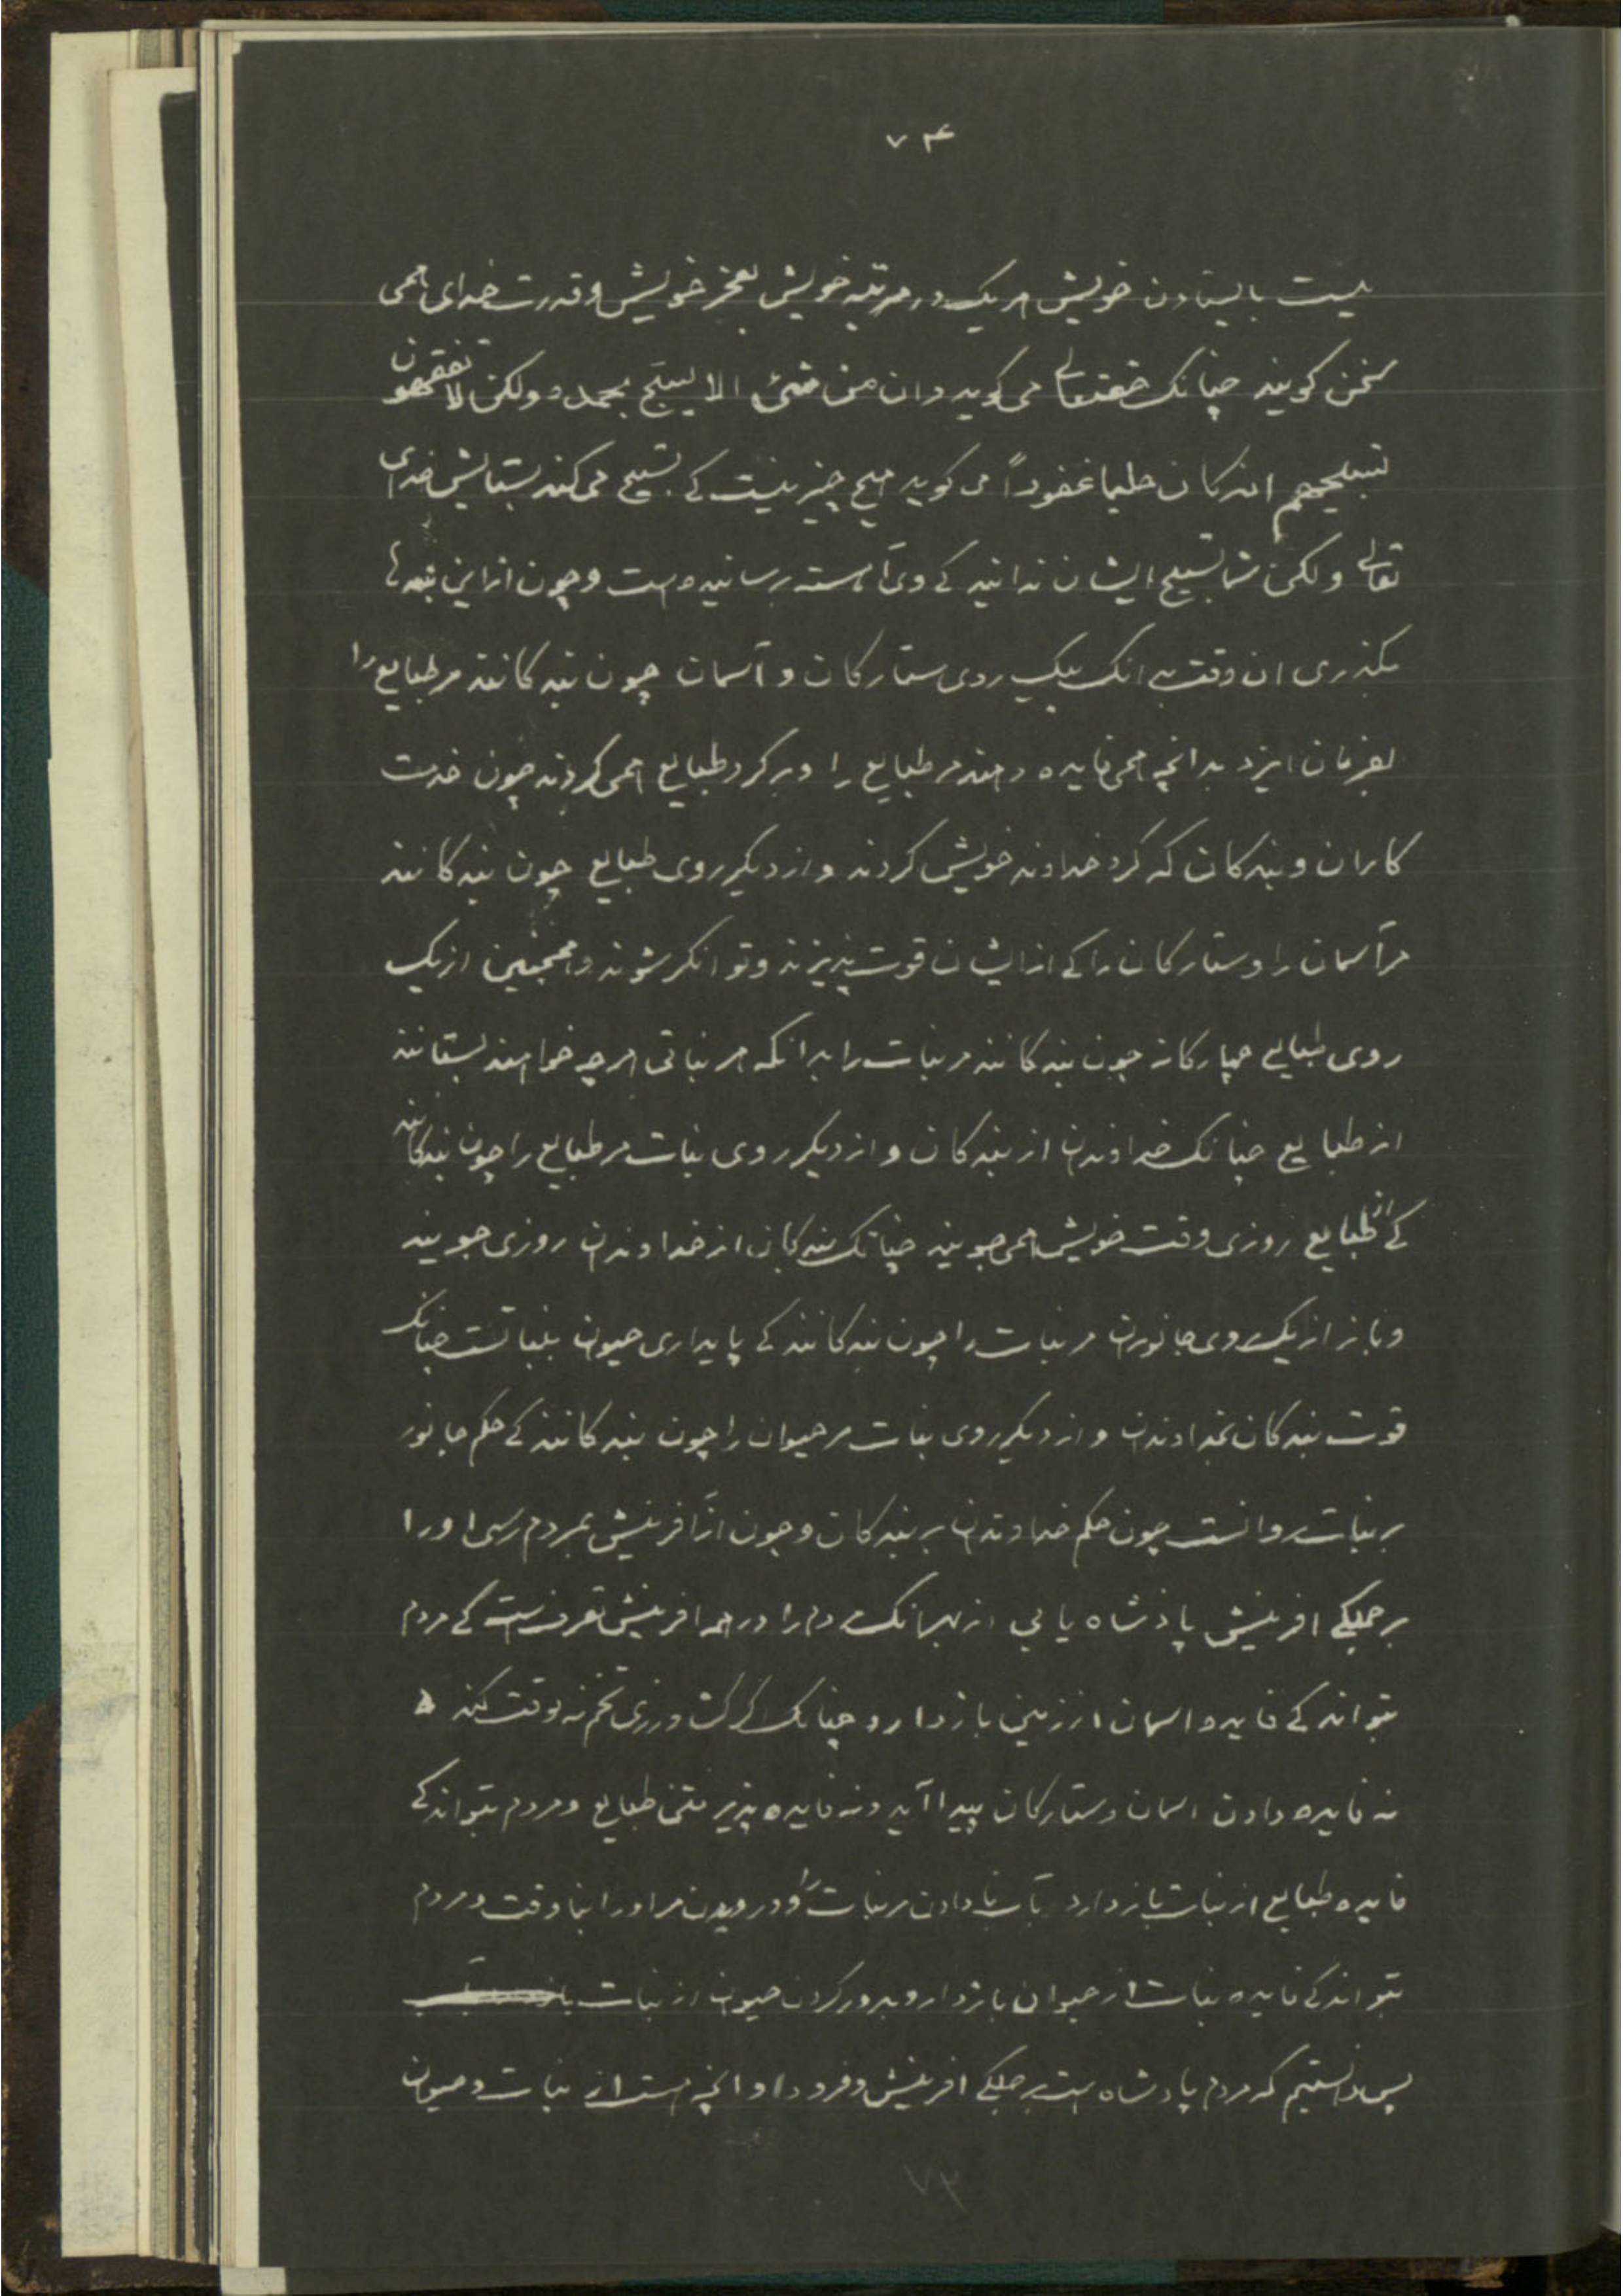 ۷۴
نیست بایستادن خویش هر یک در مرتبه خویش بعجز خویش و قدرت خدای همی
سخن کویند چنانک حقتعالی می کوید و ان من شیئ الا یسبح بحمده ولکن لا تفقهون
تسبیحهم انه کان حلیما غفوراً می کوید هیچ چیز نیست کے تسبیح می کند بستایش خدای
تعالی و لکن شما تسبیح ایشان ندانید کے وی آهسته رسانیده است و چون از این بندها
بکذری ان وقت بدانک بیک روی ستارکان و آسمان چون بندکانند مر طبایع را
بفرمان ایزد بدانچه همی فایده دهند مر طبایع را و بر کرد طبایع همی کردند چون خدمت
کاران و بندکان که کرد خداوند خویش کردند و از دیکر روی طبایع چون بندکانند
مر آسمان را و ستارکان را کے از ایشان قوت پذیرند و توانکر شوند و همچنین از یک
روی طبایع چهارکانه چون بندکانند مر نبات را بدانکه هر نباتی هر چه خواهند بستانند
از طبایع چنانک خداوندان از بندکان و از دیکر روی نبات مر طبایع را چون بندکانند
کے از طبایع روزی وقت خویش همی جویند چنانک بندکان از خداوندان روزی جویند
و باز از یک روی جانوران مر نبات را چون بندکانند کے پایداری حیوان بنباتست چنانک
قوت بندکان بخداوندان و از دیکر روی نبات مر حیوان را چون بندکانند کے حکم جانور
بر نبات روانست چون حکم خداوندان بر بندکان و چون از آفرینش بمردم رسی او را
بر جملکے افرینش پاذشاه یابی از بهر انک مردم را در همه افرینش تصرفست کے مردم
بتواند کے فایده اسمان از زمین بازدارد چنانک اکر کشت ورزی تخم نه بوقت کند
نه فایده دادن اسمان و ستارکان پیدا آید و نه فایده پذیرفتن طبایع و مردم بتواند کے
فایده طبایع از نبات بازدارد بآب نادادن مر نبات را و درویدن مر او را بناوقت و مردم
بتواند کے فایده نبات از حیوان بازدارد و بدور کردن حیوان از نبات
پس دانستیم که مردم پادشاه است بر جملکے افرینش و فرود او انچه هست از نبات و حیوان
۷۳